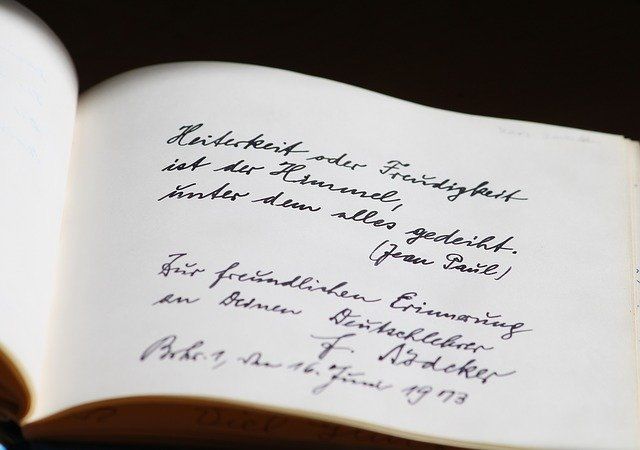 Heiterkeit oder Freudigkeit
ist der Himmel,
unter dem alles gedeiht.
(Jean Paul)
Zur freundlichen Erinnerung
an Deinen Deutschlehrer
F. Bädeker
den 16. Juni 1973
Viel